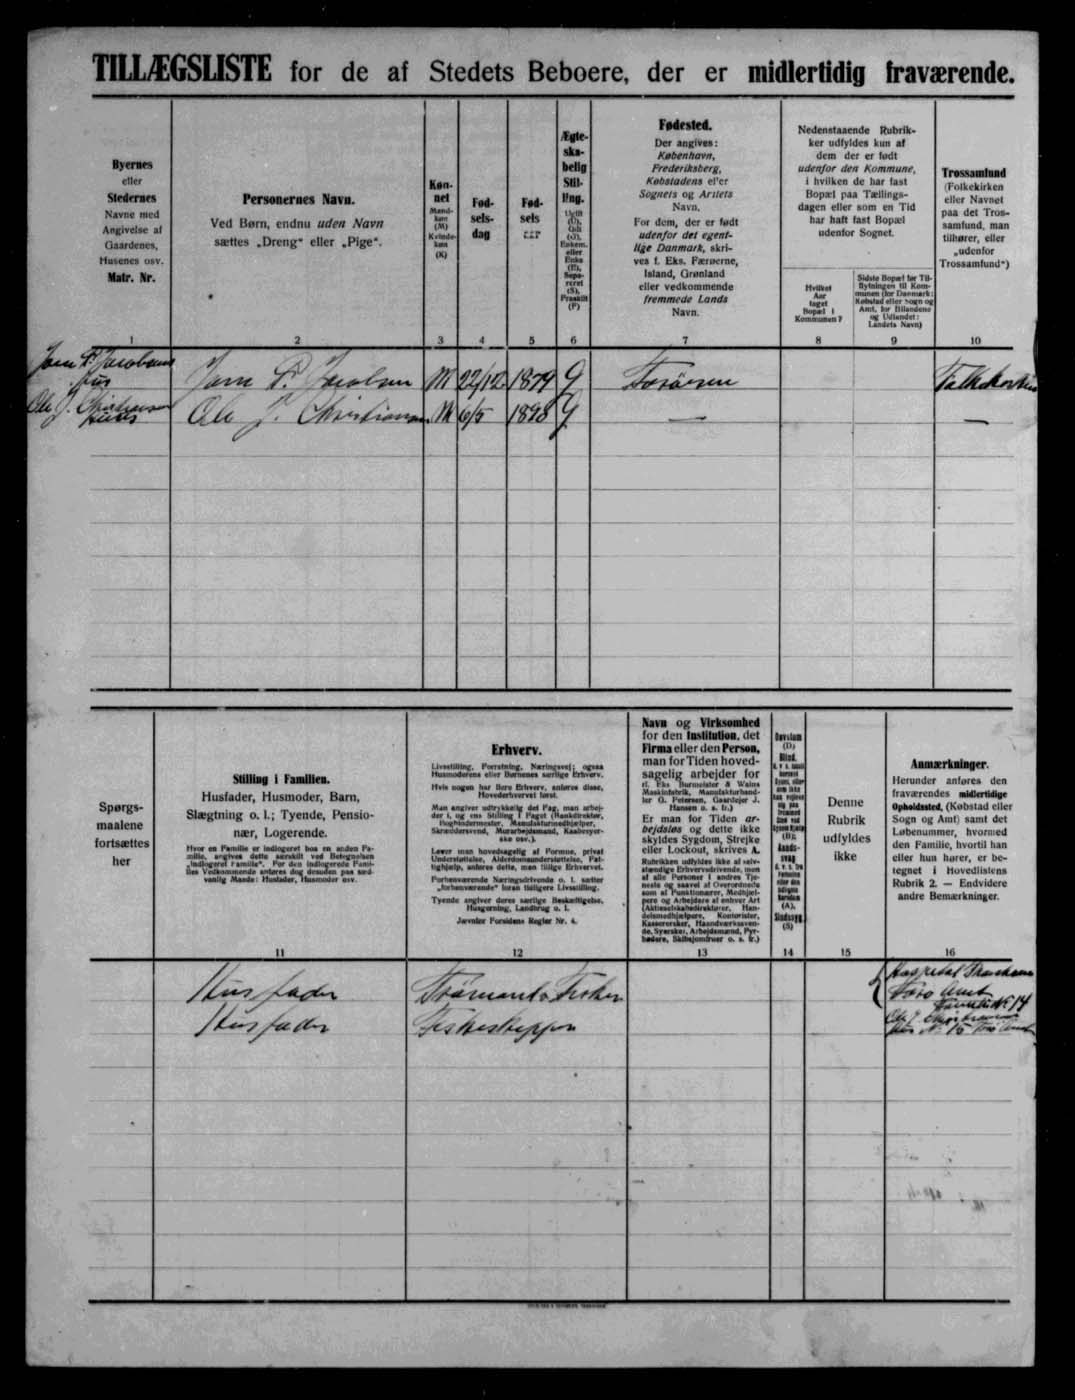 TILLÆGSLISTE for de af Stedets Beboere, der er midlertidig fraværende.
Byernes
eller
Stedernes
Navne med
Angivelse af
Gaardenes,
Husenes osv.
Matr. Nr.
1
Personernes Navn.
Ved Børn, endnu uden Navn
sættes „Dreng“ eller „Pige“.
2
Køn-
net
Mand-
køn
(M)
Kvinde-
køn
(K)
3
Fød-
sels-
dag
4
Fød-
sels
5
Ægte-
ska-
belig
Stil-
ling.
Ugift
(U),
Gift
(G),
Enkem.
eller
Enke
(E),
Sepa-
reret
(S),
Fraskilt
(F)
6
Fødested.
Der angives:
København,
Frederiksberg,
Købstadens eller
Sognets og Amtets
Navn.
For dem, der er født
udenfor det egent-
lige Danmark, skri-
ves f. Eks. Færøerne,
Island, Grønland
eller vedkommende
fremmede Lands
Navn.
7
Nedenstaaende Rubrik-
ker udfyldes kun af
dem der er født
udenfor den Kommune,
i hvilken de har fast
Bopæl paa Tællings-
dagen eller som en Tid
har haft fast Bopæl
udenfor Sognet.
Hvilket
Aar
taget
Bopæl i
Kommunen?
8
Sidste Bopæl før Til-
flytningen til Kom-
munen (for Danmark:
Købstad eller Sogn og
Amt, for Bilandene
og Udlandet:
Landets Navn)
9
Trossamfund
(Folkekirken
eller Navnet
paa det Tros-
samfund, man
tilhører, eller
„udenfor
Trossamfund“)
10
Jacobsens
hus
P. Jacobsen M 22/12 1879 G Færøerne
Ole J. Christiansens
Ole J. Christiansen M 6/5 1898 G — —
Spørgs-
maalene
fortsættes
her
Stilling i Familien.
Husfader, Husmoder, Barn,
Slægtning o. l.; Tyende, Pensio-
nær, Logerende.
Hvor en Familie er indlogeret hos en anden Fa-
milie, angives dette særskilt ved Betegnelsen
„indlogeret Familie“. For den indlogerede Fami-
lies Vedkommende anføres dog desuden paa sæd-
vanlig Maade: Husfader, Husmoder osv.
11
Erhverv.
Livsstilling, Forretning, Næringsvej; ogsaa
Husmoderens eller Børnenes særlige Erhverv.
Hvis nogen har flere Erhverv, anføres disse,
Hovederhvervet først.
Man angiver udtrykkelig det Fag, man arbej-
der i, og ens Stilling i Faget (Bankdirektør,
Bogbindermester, Manufakturmedhjælper,
Skræddersvend, Murarbejdsmand, Kasserer-
ske osv.).
Lever man hovedsagelig af Formue, privat
Understøttelse, Alderdomsunderstøttelse, Fat-
tighjælp, anføres dette, man tillige Erhvervet.
Forhenværende Næringsdrivende o. l. sætter
„forhenværende“ foran tidligere Livsstilling.
Tyende angiver deres særlige Beskæftigelse,
Husgerning, Landbrug o. l.
Jævnfør Forsidens Regler Nr. 4.
12
Navn og Virksomhed
for den Institution, det
Firma eller den Person,
man for Tiden hoved-
sagelig arbejder for
(f. Eks Burmeister & Wains
Maskinfabrik, Manufakturhand-
ler G. Petersen, Gaardejer J.
Hansen o. s. fr.)
Er man for Tiden ar-
bejdsløs og dette ikke
skyldes Sygdom, Strejke
eller Lockout, skrives A.
Rubrikken udfyldes ikke af selv-
stændige Erhvervsdrivende, men
af alle Personer i andres Tje-
neste og saavel af Overordnede
som af Funktionærer, Medhjæl-
pere og Arbejdere af enhver Art
(Aktieselskabsdirektører, Han-
delsmedhjælpere, Kontorister,
Kasserersker, Haandværkssven-
de, Syersker, Arbejdsmænd, Fyr-
bødere, Skibsjomfruer o. s. fr.)
13
Døvstum
(D)
Blind
(B);
Aands-
svag
(A),
Sindssyg
(S)
14
Denne
Rubrik
udfyldes
ikke
15
Anmærkninger.
Herunder anføres den
fraværendes midlertidige
Opholdssted, (Købstad eller
Sogn og Amt) samt det
Løbenummer, hvormed
den Familie, hvortil han
eller hun hører, er be-
tegnet i Hovedlistens
Rubrik 2. — Endvidere
andre Bemærkninger.
16
Husfader Hospital Thorshavn
Færø Amt
Familie Nr 14
Husfader Fiskeskipper Ole J. Christiansens
hus Nr. 15 Færø Amt